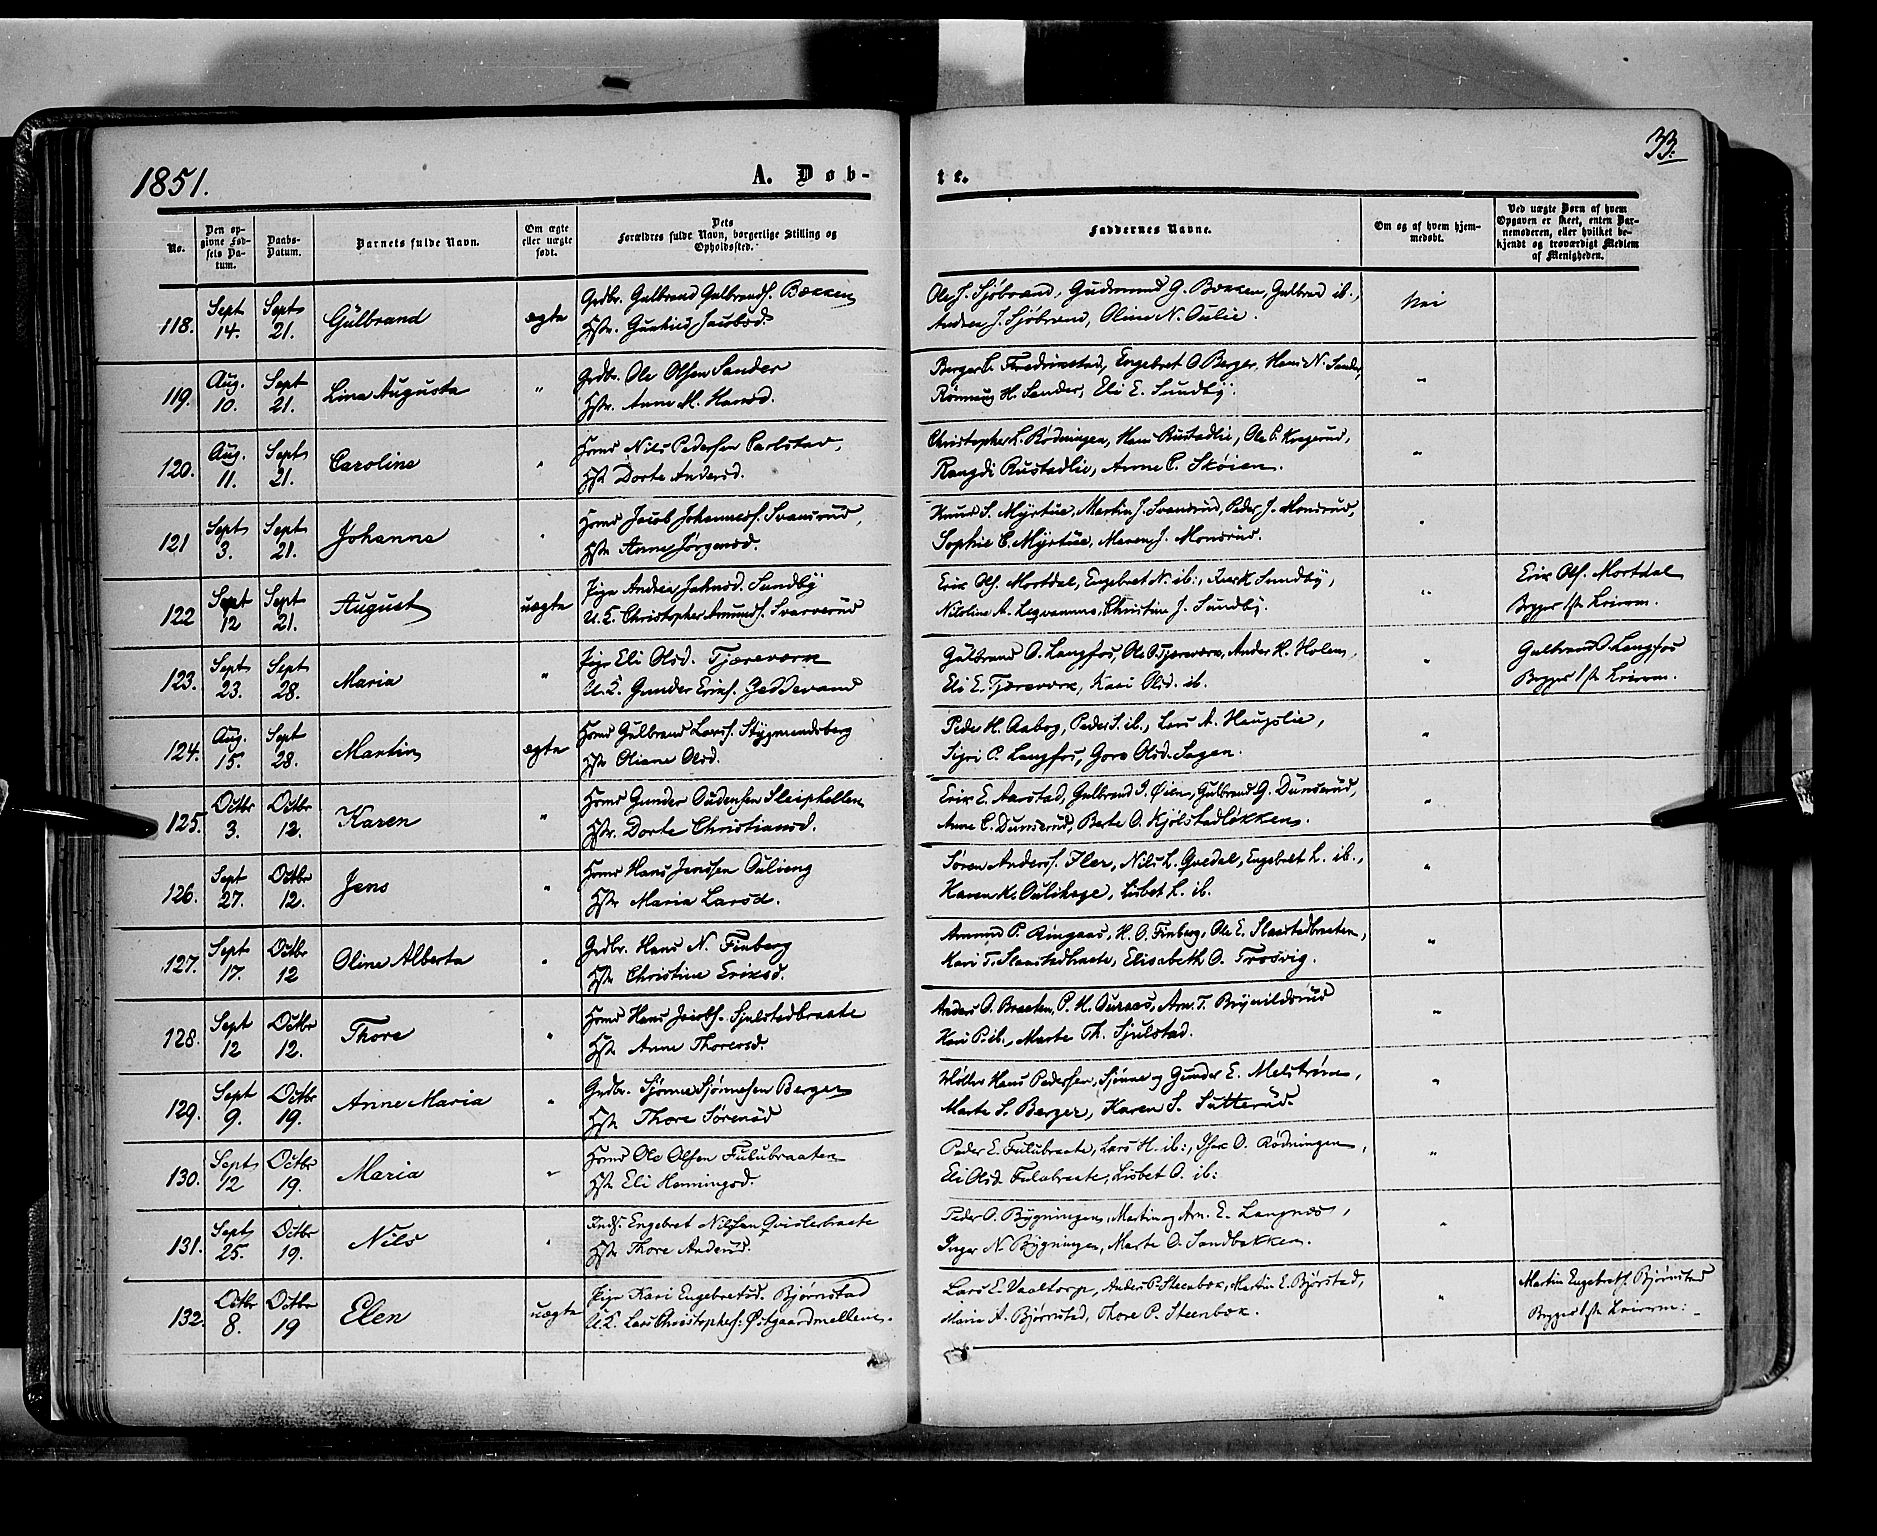 1851.
A. Døb-
te.
33.
No.
Den op-
givne Fød-
sels Da-
tum.
Daabs-
Datum.
Barnets fulde Navn.
Om ægte
eller uægte
født.
Dets
Forældres fulde Navn, borgerlige Stilling og
Opholdssted.
Faddernes Navne.
Om og af hvem hjem-
medøbt.
Ved uægte Børn af hvem
Opgaven er skeet, enten Bar-
nemoderen, eller hvilket be-
kjendt og troværdigt Medlem
af Menigheden.
118. Sept 14. Sept 21. Gulbrand ægte Grdbr. Gulbrand Gulbrands. Bækken
Hstr.
Ole J. Sjøbrand, Gudmund G. Bækken, Gulbrand ib.,
Andrea J. Sjøbrand, Oline N. Oulie.
Nei
119. Aug. 10. Sept 21. Lina Augusta " Grdbr. Ole Olsen Sander
Hstr. Anne M. Hansd.
Engebret O. Berger, Hans N. Sander,
Rönnaug H. Sander, Eli E. Sundby.
"
120. Aug. 11. Sept 21. Caroline " Hsmd Nils Pedersen Carlstad,
Hstr Dorte Andersd.
Christopher L. Rødningen, Hans Rustadlie, Ole P. Kragerud,
Rangdi Rustadlie, Anne C. Skøien.
"
121 Sept 3. Sept 21. Johanne " Hsmd Jacob Johanness. Svansrud,
Hstr Anne Jørgensd.
Knud S. Myrtue, Martin J. Svansrud, Peder J. Monsrud,
Sophie C. Myrtue, Maren J. Monsrud.
"
122 Sept 12 Sept 21. August uægte Pige Andrea Sundby
U.K. Christopher Amunds. Svarverud
Erik Ols. Mortdal, Engebret N. ib:, Iver K. Sundby,
Christine J. Sundby.
"
Erik Ols. Mortdal
123. Sept 23. Sept 28. Maria " Pige Eli Olsd. Tjæreværk
U.K. Gunder Eriks. Geddevand
Gulbrand O. Langfos, Ole O. Tjæreværk, Anders H. Holen,
Eli E. Tjæreværk, Kari Olsd. ib.
"
Gulbrand O. Langfos
124. Aug. 15. Sept 28. Martin ægte Hsmd Gulbrand Larss. Stygmundsberg
Hstr Oliane Olsd.
Peder H. Aabog, Peder S. ib., Lars A. Haugslie,
Sigri C. Langfos, Goro Olsd. Sagen.
"
125. Octbr 3. Octbr 12. Karen " Hsmd Gunder Oudensen Sleiphellen
Hstr. Dorte Christiansd.
Erik E. Aarstad, Gulbrand J. Øien, Gulbrand G. Dunserud,
Anne C. Dunserud, Berte O. Kjølstadløkken.
"
126. Sept 27. Octbr 12. Jens " Hsmd Hans Jenssen Oulieng
Hstr Maria Larsd.
Søren Anderss. Fler, Nils L. Qvedal, Engebret L. ib.,
Karen K. Oulihage, Lisbet L. ib.
"
127. Sept 17. Octbr 12 Oline Alberta " Grdbr. Hans N. Finberg
Hstr Christine Eriksd.
Amund P. Ringaas, H. O. Finberg, Ole E. Slaastadbraaten,
Kari T. Slaastadbraate, Elisabeth O. Trosvig.
"
128. Sept 12 Octbr 12. Thore " Hsmd Hans Jacobs. Sjulstadbraate
Hstr. Anne Thoresd.
Anders O. Braaten, P. H. Ouraas, Arn. T. Brynildsrud
Kari P. ib., Marte Th. Sjulstad.
"
129. Sept 9. Octbr 19. Anne Maria " Grdbr. Sjønne Sjønnesen Berger
Hstr. Thore Sørensd
Hans Pedersen, Sjønne og Gunder E. Melstrøm,
Marte S. Berger, Karen S. Sutterud.
"
130. Sept 12 Octbr 19. Maria " Hsmd Ole Olsen Fulubraaten
Hstr. Eli Henningsd.
Peder E. Fulubraate, Lars H. ib:, Isak O. Rødningen,
Eli Olsd. Fulubraate, Lisbet O. ib:
"
131. Sept 25. Octbr 19. Nils " Inds. Engebret Nilssen Qvislebraate
Hstr. Thore Andersd.
Peder O. Bygningen, Martin og Arn. E. Langnæs,
Inger N. Bygningen, Marte O. Sandbakken.
"
132. Octbr 8. Octbr 19 Elen uægte Pige Kari Engebretsd. Bjørnstad
U.K. Lars Christophers. Østgaardmellem.
Lars E. Vaaltorp, Anders P. Steenbæk, Martin E. Bjørnstad,
Marie A. Bjørnstad, Thore P. Steenbæk.
"
Martin Engebrets. Bjørnstad